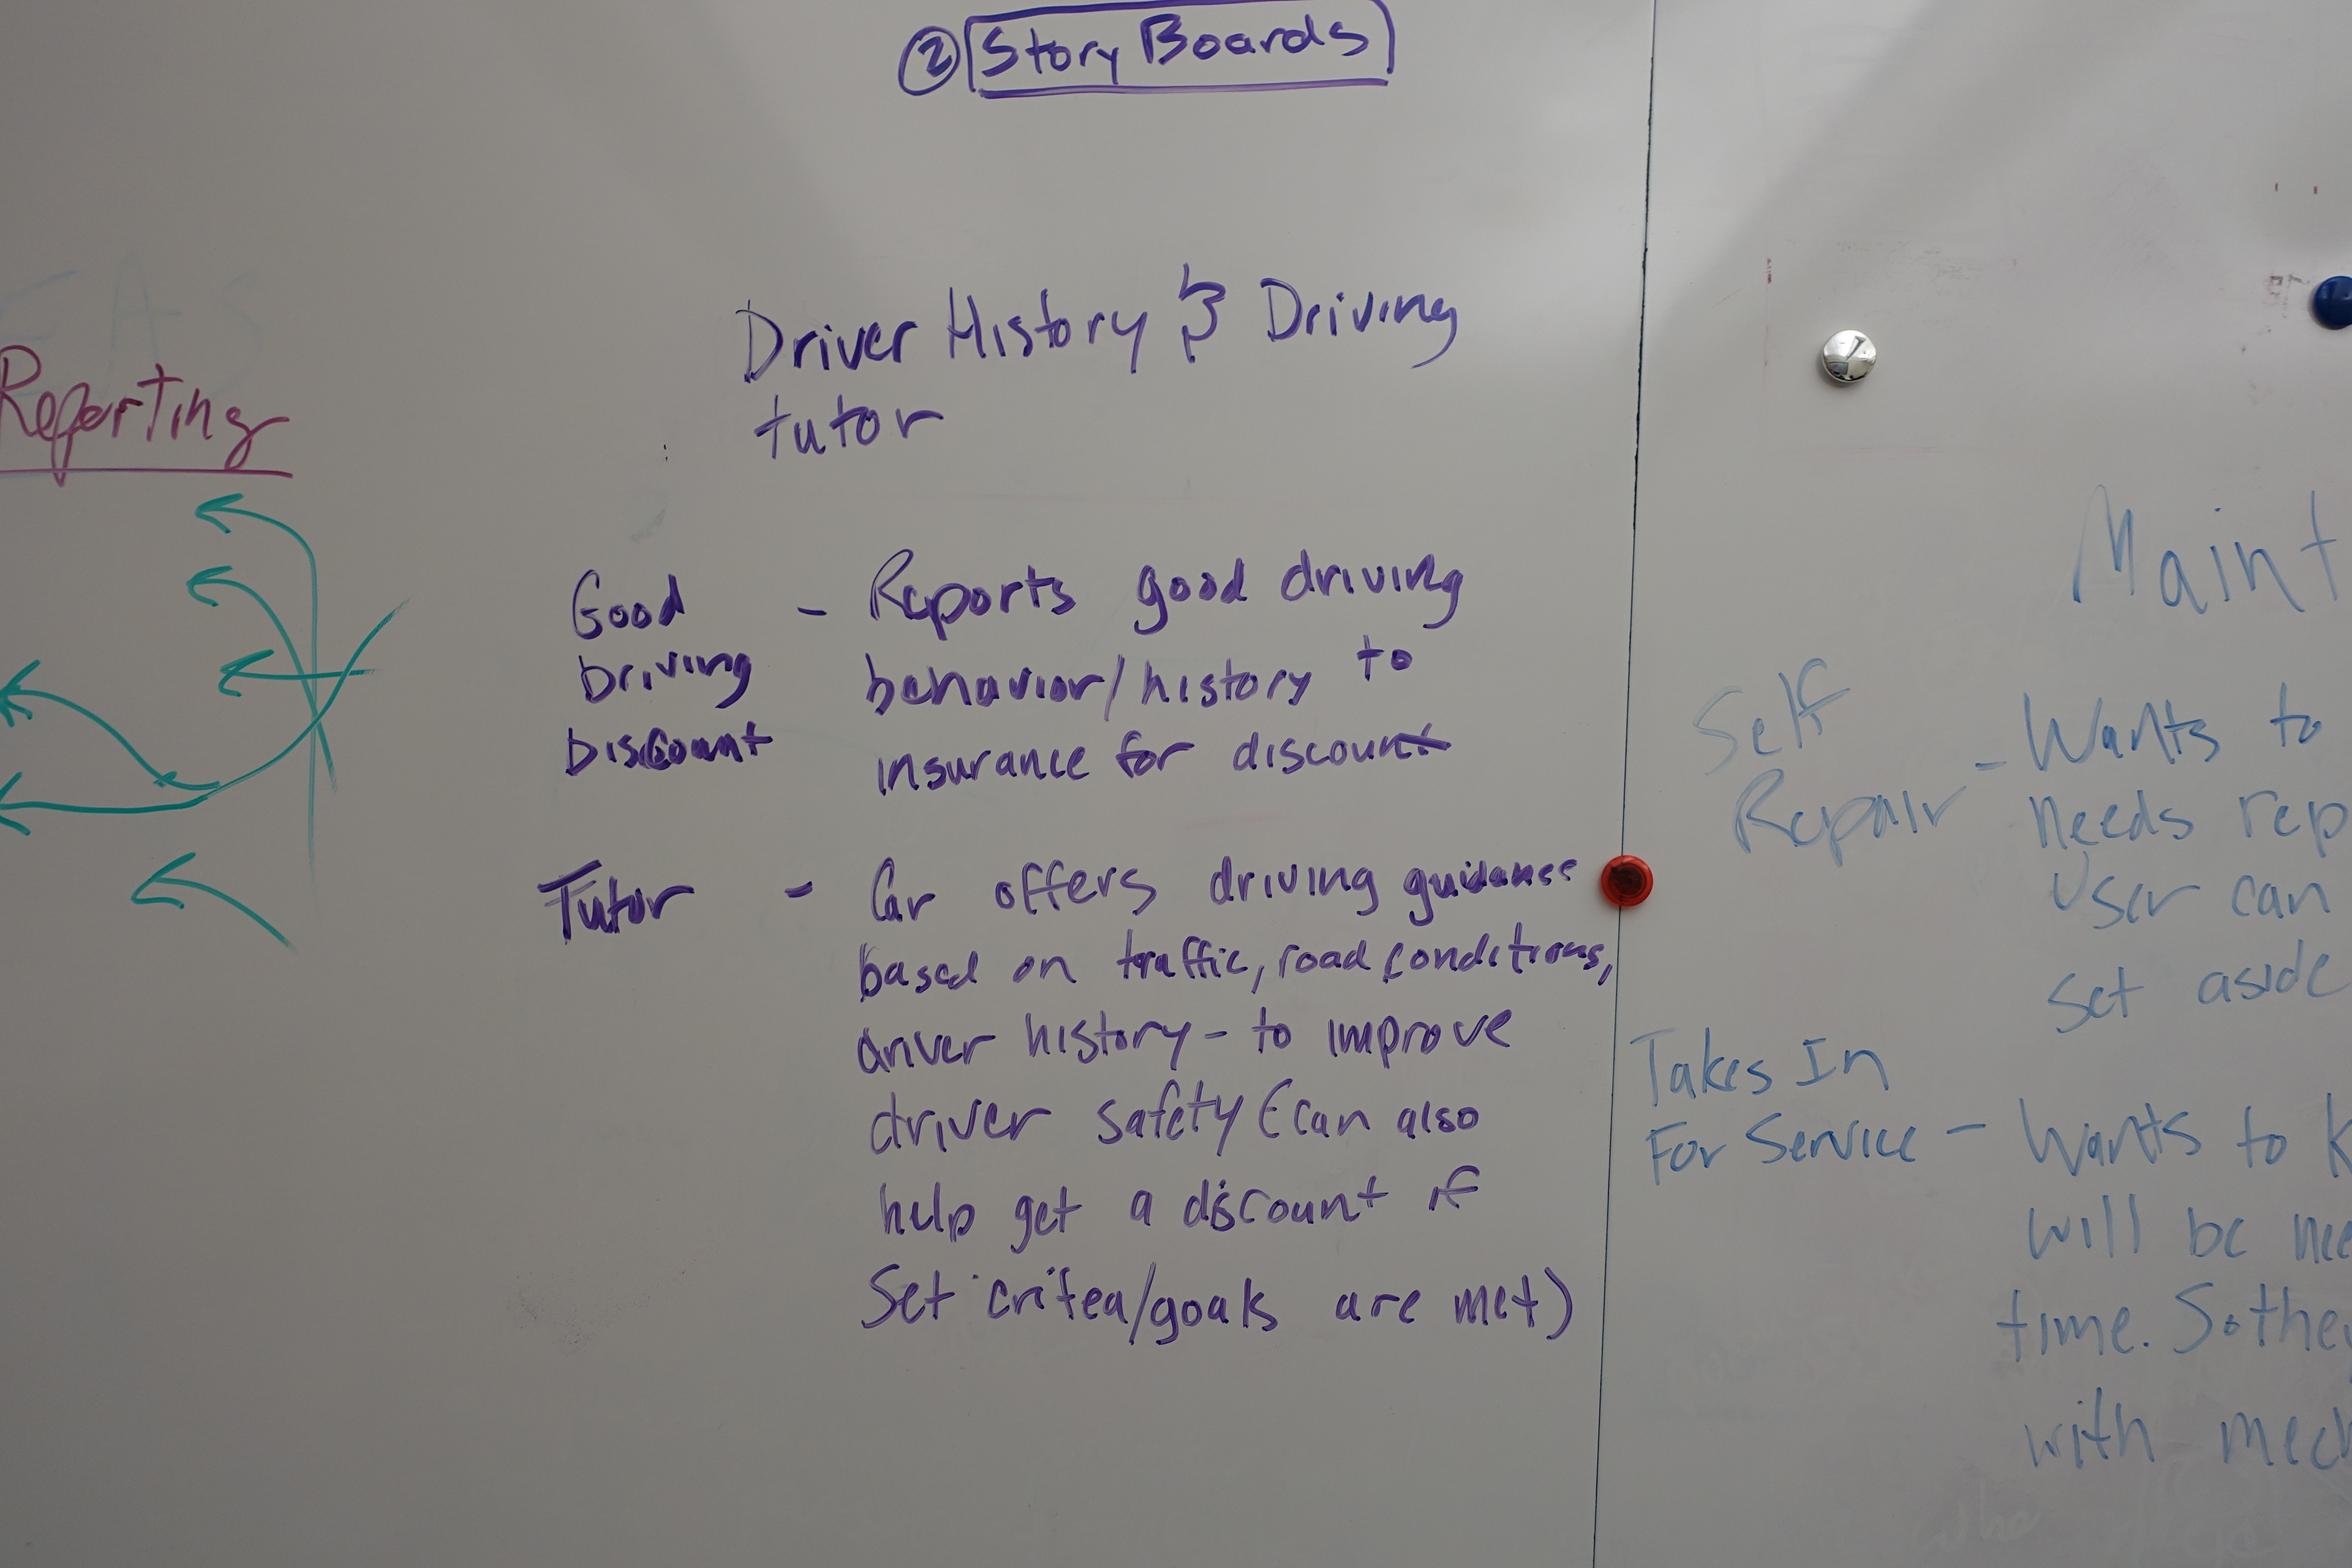 ② Story Boards
Reporting
Driver History & Driving
tutor
Good - Reports good driving
Driving behavior/history to
Discount insurance for discount
Tutor - Car offers driving guidance
based on traffic, road conditions,
driver history - to improve
driver safety (can also
help get a discount if
Set critea/goals are met)
Maint
Self
Repair - Wants to
needs rep
User can
set aside
Takes In
For Service - Wants to k
will be nee
time. So they
with mech